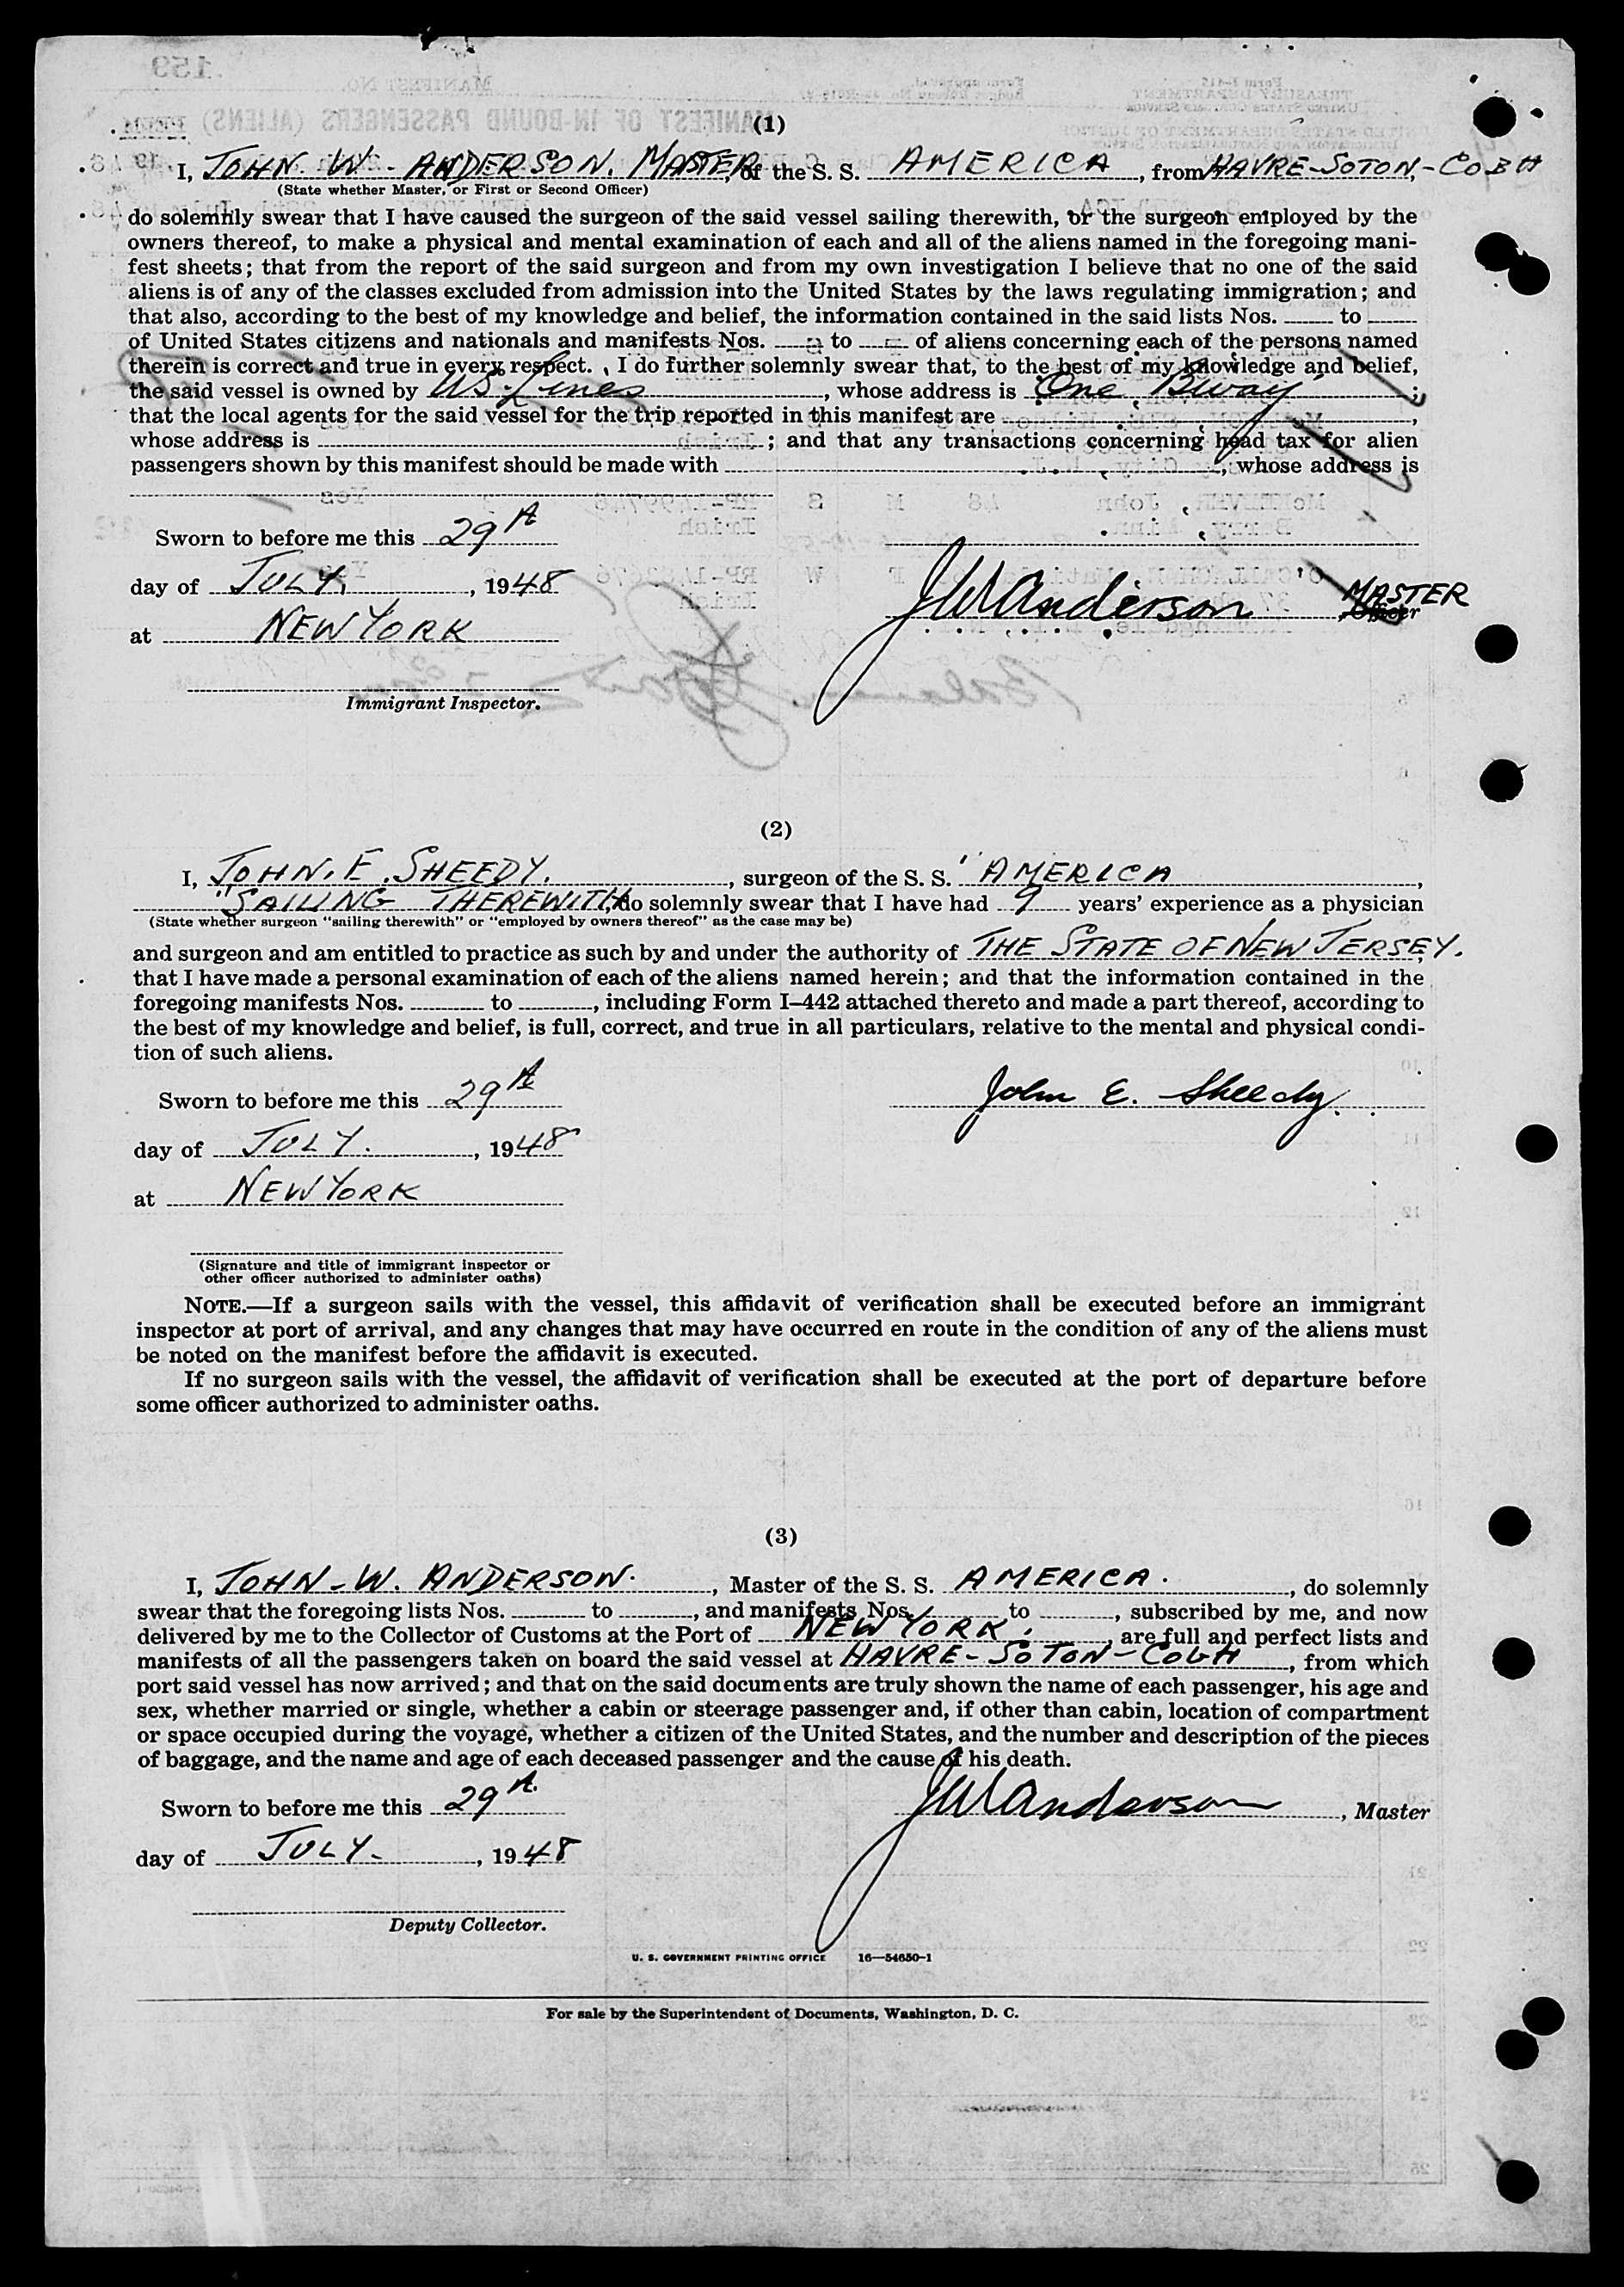 (1)
I, JOHN. W. ANDERSON. MASTER, of the S. S. AMERICA, from HAVRE-SOTON,-COBH
(State whether Master, or First or Second Officer)
do solemnly swear that I have caused the surgeon of the said vessel sailing therewith, or the surgeon employed by the
owners thereof, to make a physical and mental examination of each and all of the aliens named in the foregoing mani-
fest sheets; that from the report of the said surgeon and from my own investigation I believe that no one of the said
aliens is of any of the classes excluded from admission into the United States by the laws regulating immigration; and
that also, according to the best of my knowledge and belief, the information contained in the said lists Nos. ........ to ........
of United States citizens and nationals and manifests Nos. ........ to ........ of aliens concerning each of the persons named
therein is correct and true in every respect. I do further solemnly swear that, to the best of my knowledge and belief,
the said vessel is owned by US. Lines, whose address is One Bway;
that the local agents for the said vessel for the trip reported in this manifest are ........,
whose address is ........; and that any transactions concerning head tax for alien
passengers shown by this manifest should be made with ........, whose address is
Sworn to before me this 29th
day of JULY, 1948
at NEW YORK
JWAnderson, MASTER Officer
Immigrant Inspector.
(2)
I, JOHN. E. SHEEDY., surgeon of the S. S. AMERICA,
"SAILING THEREWITH, do solemnly swear that I have had 9 years' experience as a physician
(State whether surgeon "sailing therewith" or "employed by owners thereof" as the case may be)
and surgeon and am entitled to practice as such by and under the authority of THE STATE OF NEW JERSEY.
that I have made a personal examination of each of the aliens named herein; and that the information contained in the
foregoing manifests Nos. ........ to ........, including Form I–442 attached thereto and made a part thereof, according to
the best of my knowledge and belief, is full, correct, and true in all particulars, relative to the mental and physical condi-
tion of such aliens.
Sworn to before me this 29th
John E. Sheedy.
day of JULY., 1948
at NEW YORK
(Signature and title of immigrant inspector or
other officer authorized to administer oaths)
NOTE.—If a surgeon sails with the vessel, this affidavit of verification shall be executed before an immigrant
inspector at port of arrival, and any changes that may have occurred en route in the condition of any of the aliens must
be noted on the manifest before the affidavit is executed.
If no surgeon sails with the vessel, the affidavit of verification shall be executed at the port of departure before
some officer authorized to administer oaths.
(3)
I, JOHN-W. ANDERSON., Master of the S. S. AMERICA., do solemnly
swear that the foregoing lists Nos. ........ to ........, and manifests Nos. ........ to ........, subscribed by me, and now
delivered by me to the Collector of Customs at the Port of NEW YORK, are full and perfect lists and
manifests of all the passengers taken on board the said vessel at HAVRE-SOTON-COBH, from which
port said vessel has now arrived; and that on the said documents are truly shown the name of each passenger, his age and
sex, whether married or single, whether a cabin or steerage passenger and, if other than cabin, location of compartment
or space occupied during the voyage, whether a citizen of the United States, and the number and description of the pieces
of baggage, and the name and age of each deceased passenger and the cause of his death.
Sworn to before me this 29th
JWAnderson, Master
day of JULY-, 1948
Deputy Collector.
U. S. GOVERNMENT PRINTING OFFICE 16—54650-1
For sale by the Superintendent of Documents, Washington, D. C.